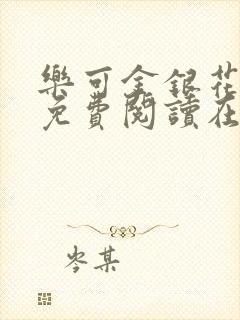 樂可金銀花
免費閱讀在
岑某